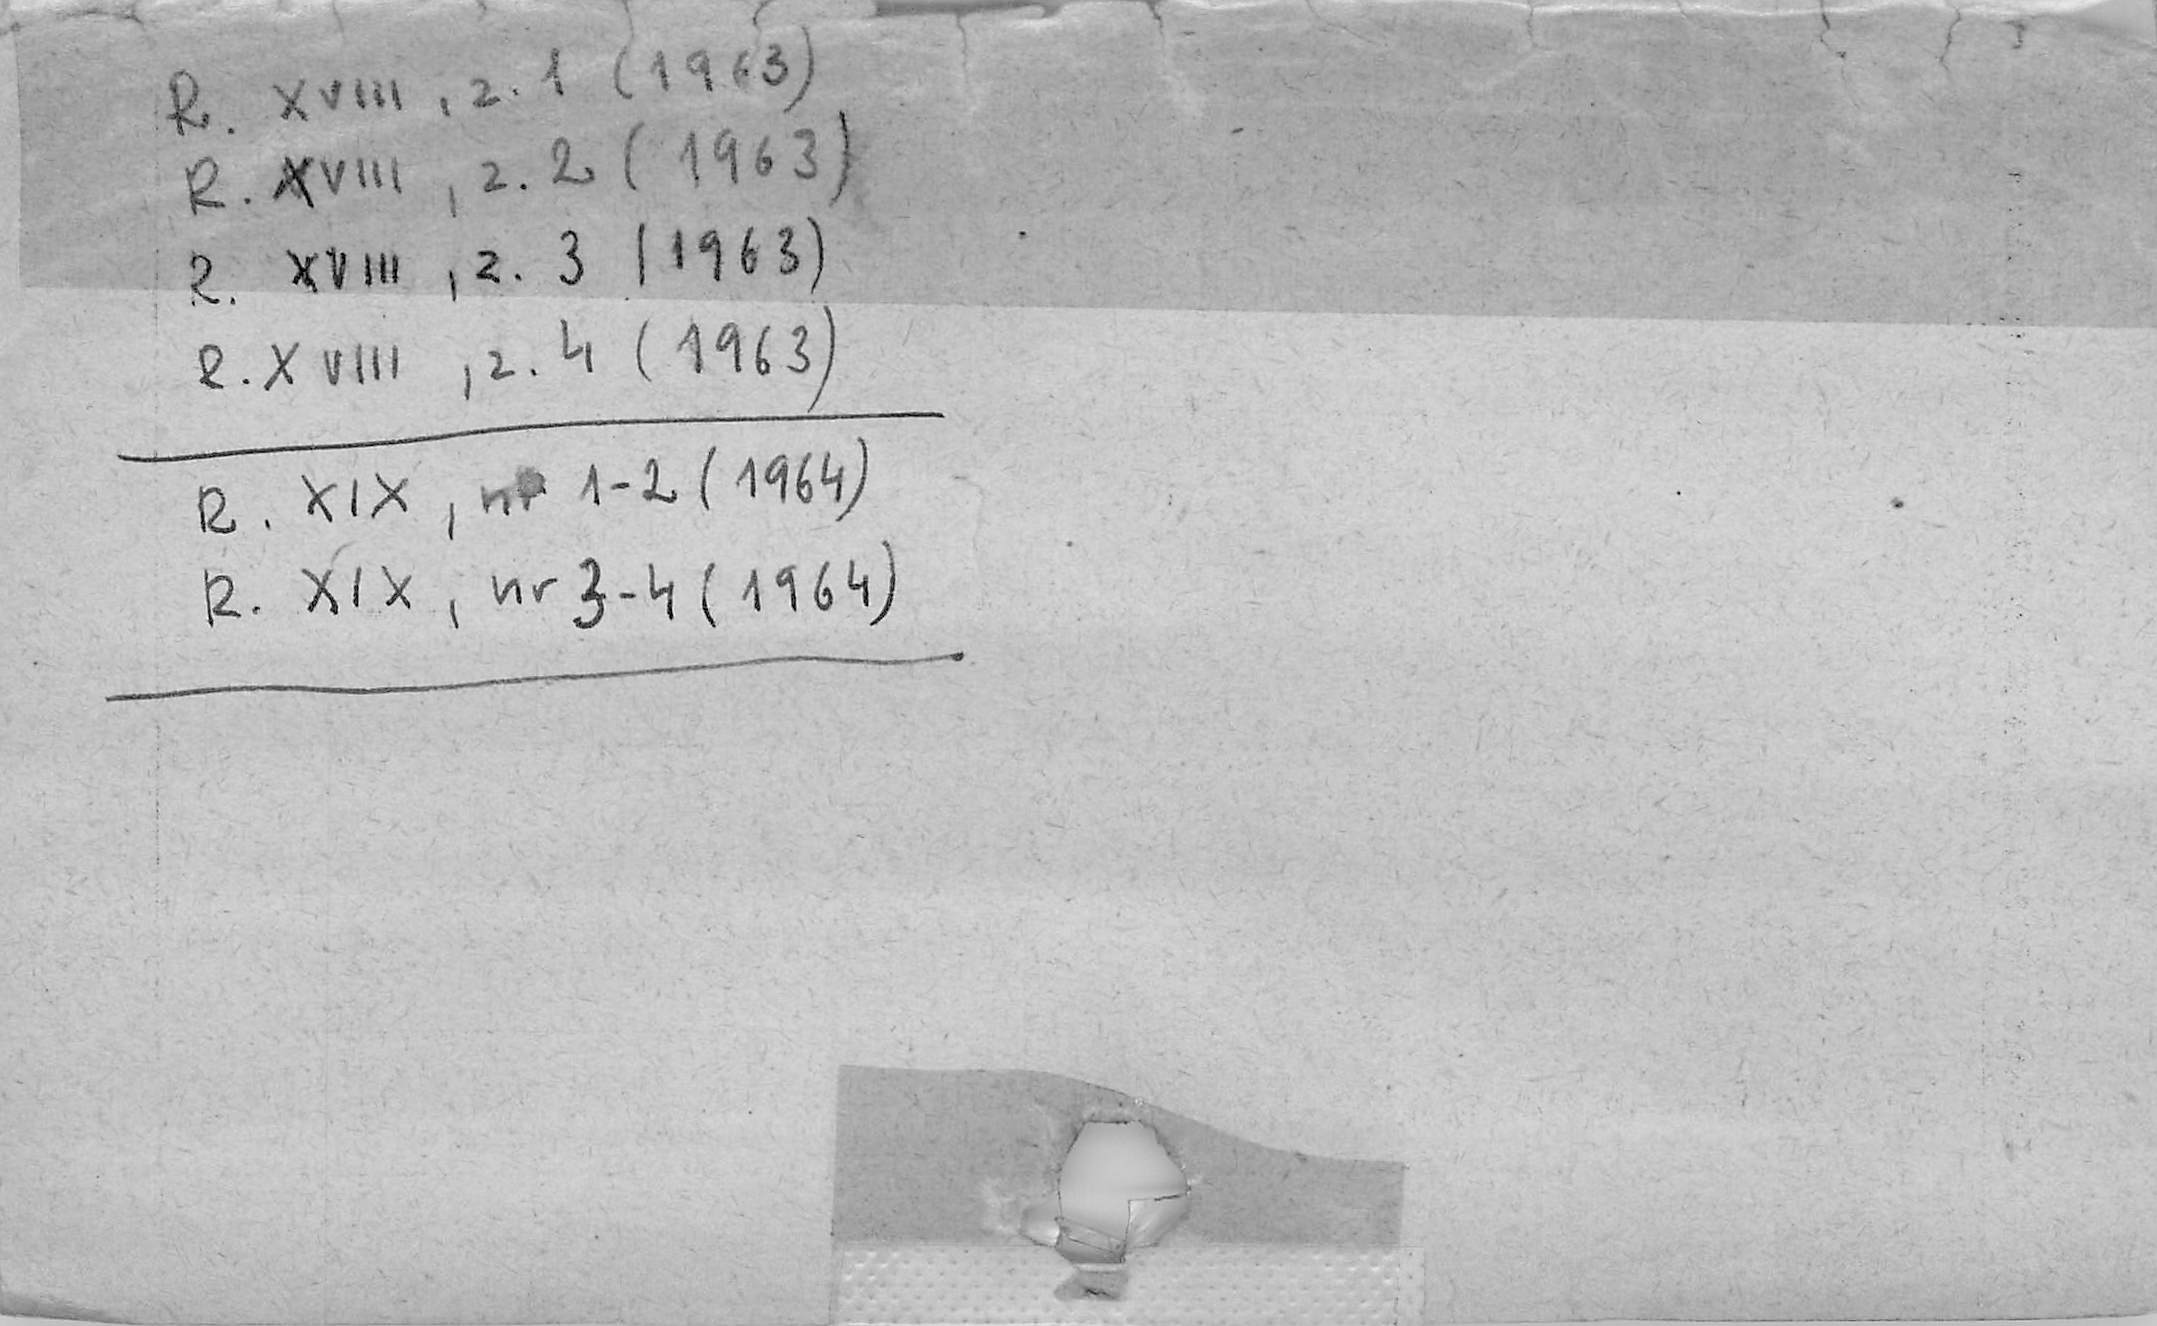 R. XVIII, z. 1 (1963)
R. XVIII, z. 2 (1963)
R. XVIII, z. 3 (1963)
R. XVIII, z. 4 (1963)
R. XIX, nr 1-2 (1964)
R. XIX, nr 3-4 (1964)